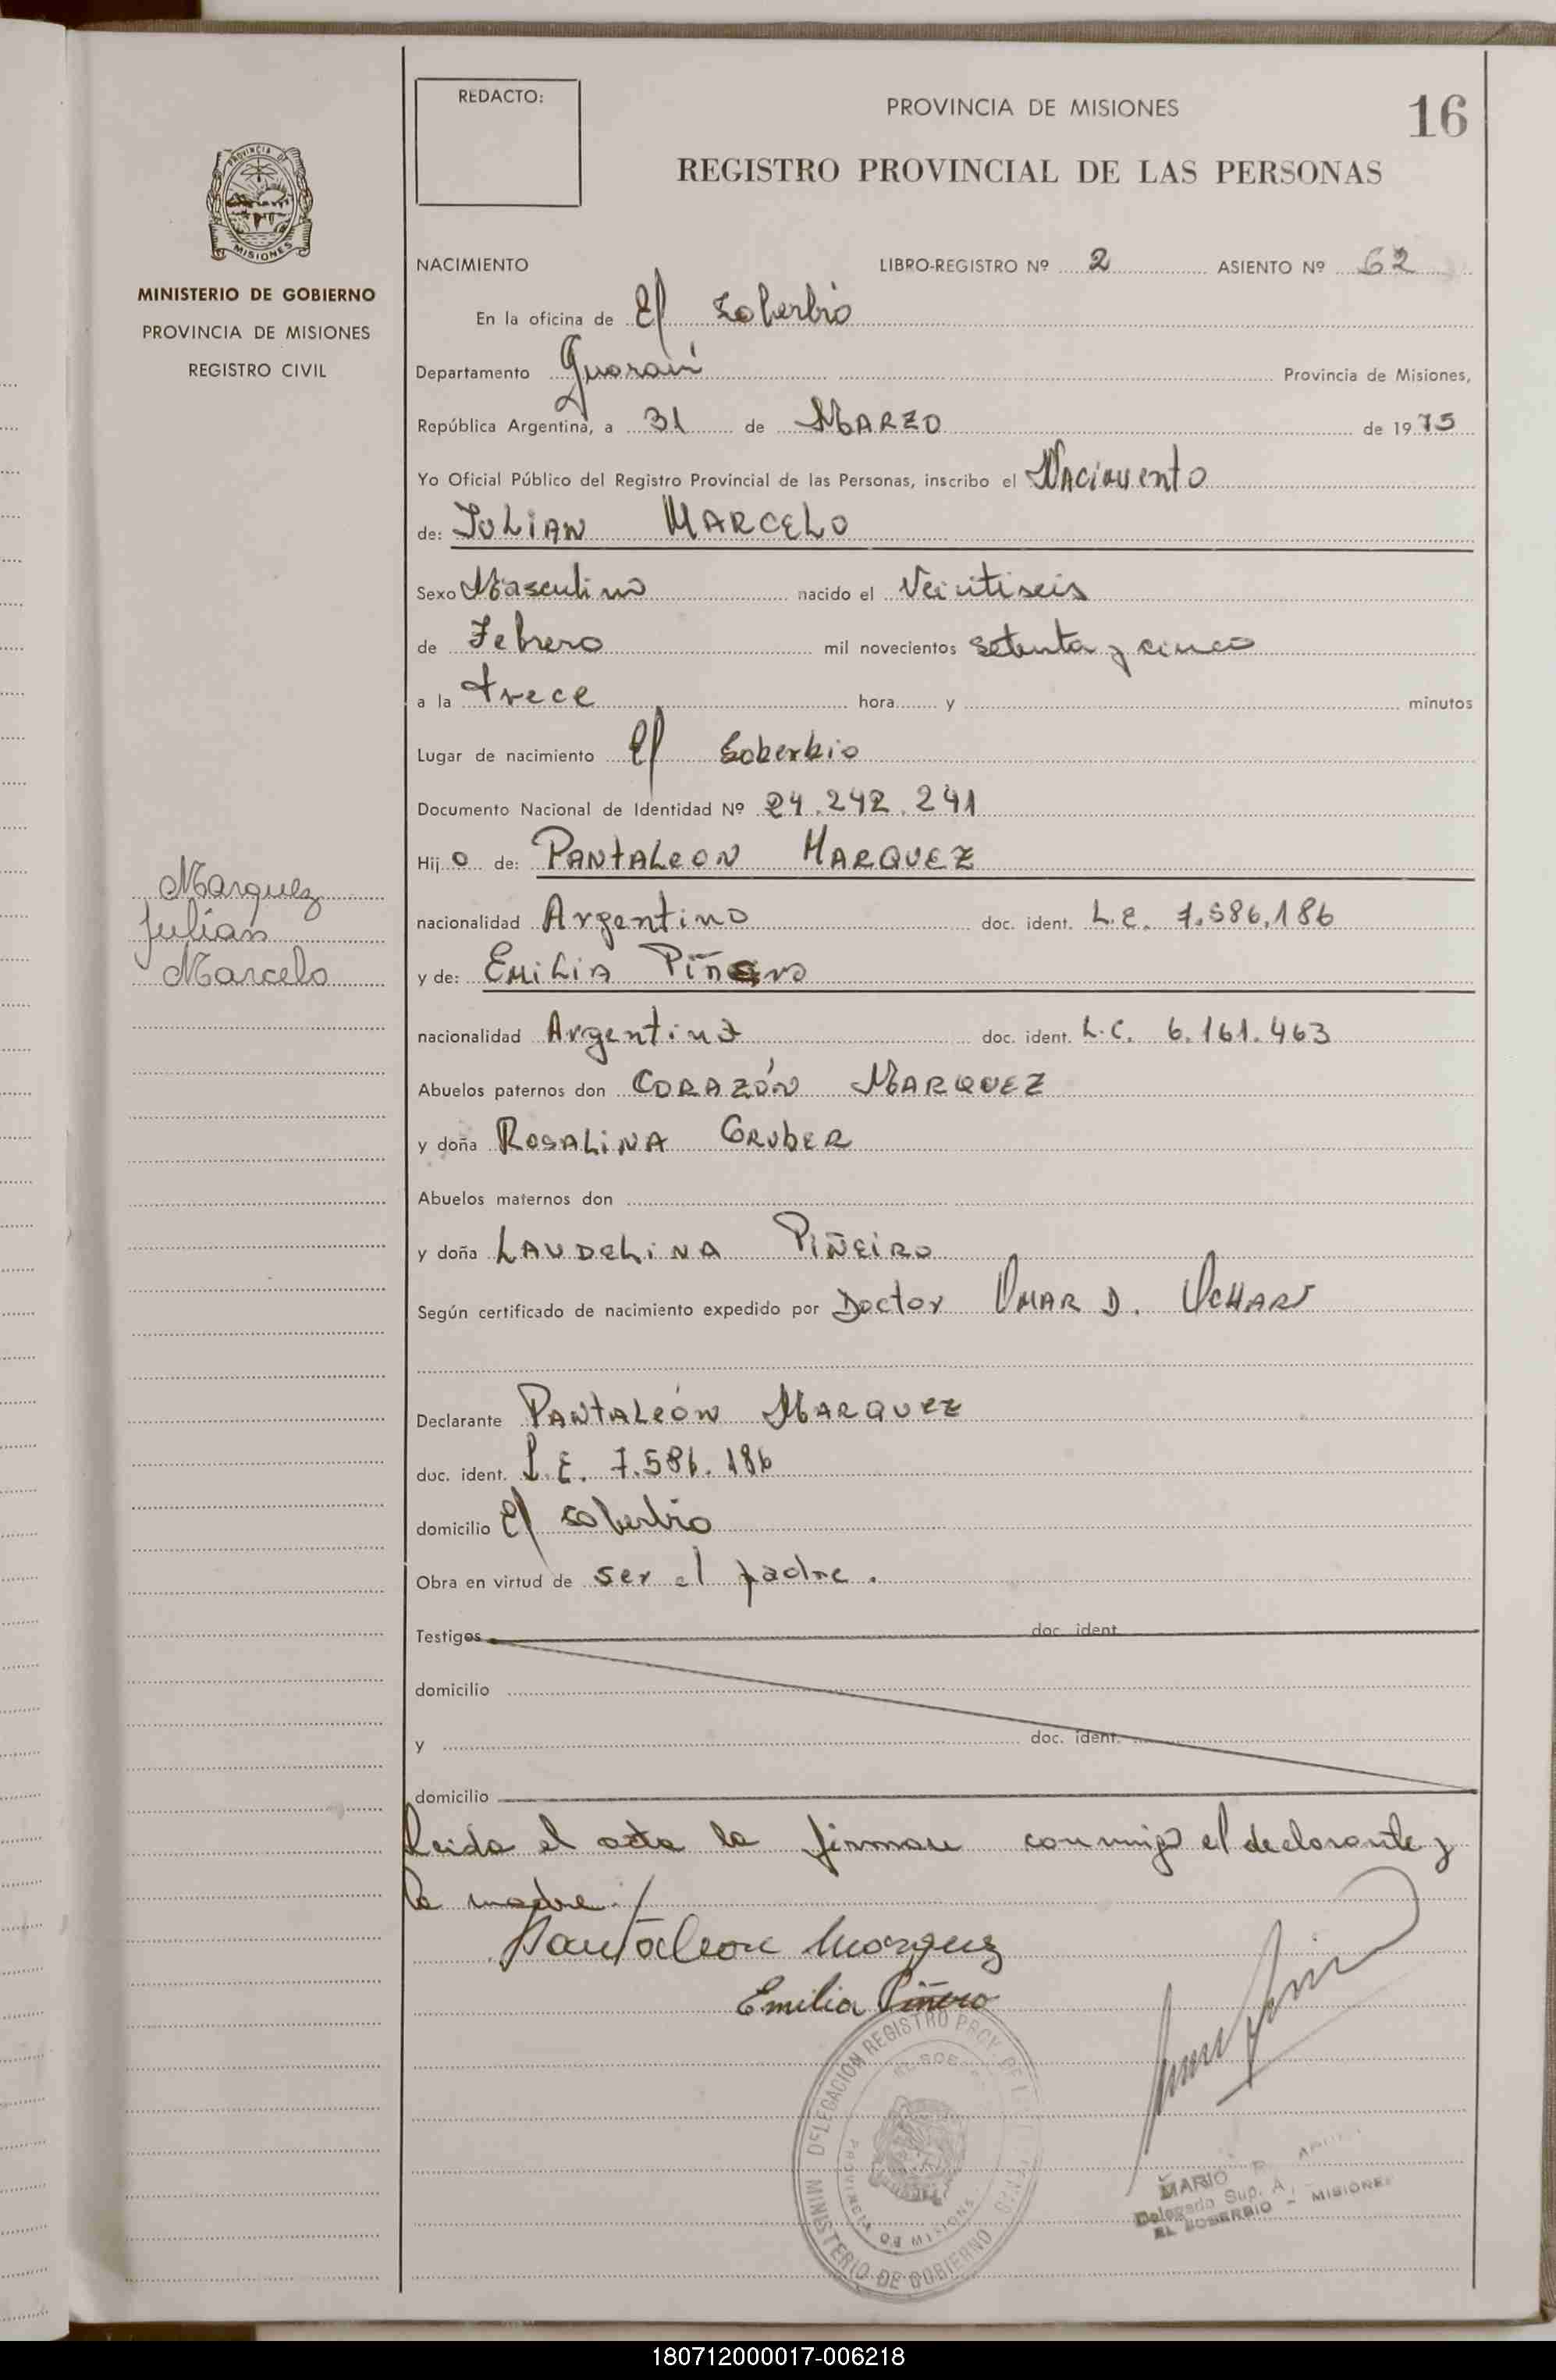 REDACTO:
PROVINCIA DE MISIONES
16
REGISTRO PROVINCIAL DE LAS PERSONAS
PROVINCIA DE
MISIONES
MINISTERIO DE GOBIERNO
PROVINCIA DE MISIONES
REGISTRO CIVIL
NACIMIENTO LIBRO-REGISTRO Nº 2 ASIENTO Nº 62
En la oficina de El Soberbio
Departamento Guaraní Provincia de Misiones,
República Argentina, a 31 de MARZO de 1975
Yo Oficial Público del Registro Provincial de las Personas, inscribo el Nacimiento
de: JULIAN MARCELO
Sexo Masculino nacido el Veintiseis
de Febrero mil novecientos setenta y cinco
a la trece hora y minutos
Lugar de nacimiento El Soberbio
Documento Nacional de Identidad Nº 24.242.241
Hij o de: PANTALEON MARQUEZ
Marquez
Julian
Marcelo
nacionalidad Argentino doc. ident. L.E. 7.586.186
y de: EMILIA PIÑERO
nacionalidad Argentina doc. ident. L.C. 6.161.463
Abuelos paternos don CORAZÓN MARQUEZ
y doña ROSALINA GRUBER
Abuelos maternos don
y doña LAUDELINA PIÑEIRO
Según certificado de nacimiento expedido por Doctor OMAR D.
Declarante PANTALEÓN MARQUEZ
doc. ident. L.E. 7.586.186
domicilio El soberbio
Obra en virtud de ser el padre.
Testigos doc. ident.
domicilio
y doc. ident.
domicilio
Leida el acta la firman conmigo el declarante y
la madre./
Pantaleon Marquez
Emilia Piñero
DELEGACION REGISTRO PROV. DE
MINISTERIO DE GOBIERNO
PROVINCIA DE MISIONES
MARIO
Delegado Sup. A
EL SOBERBIO - MISIONES
180712000017-006218